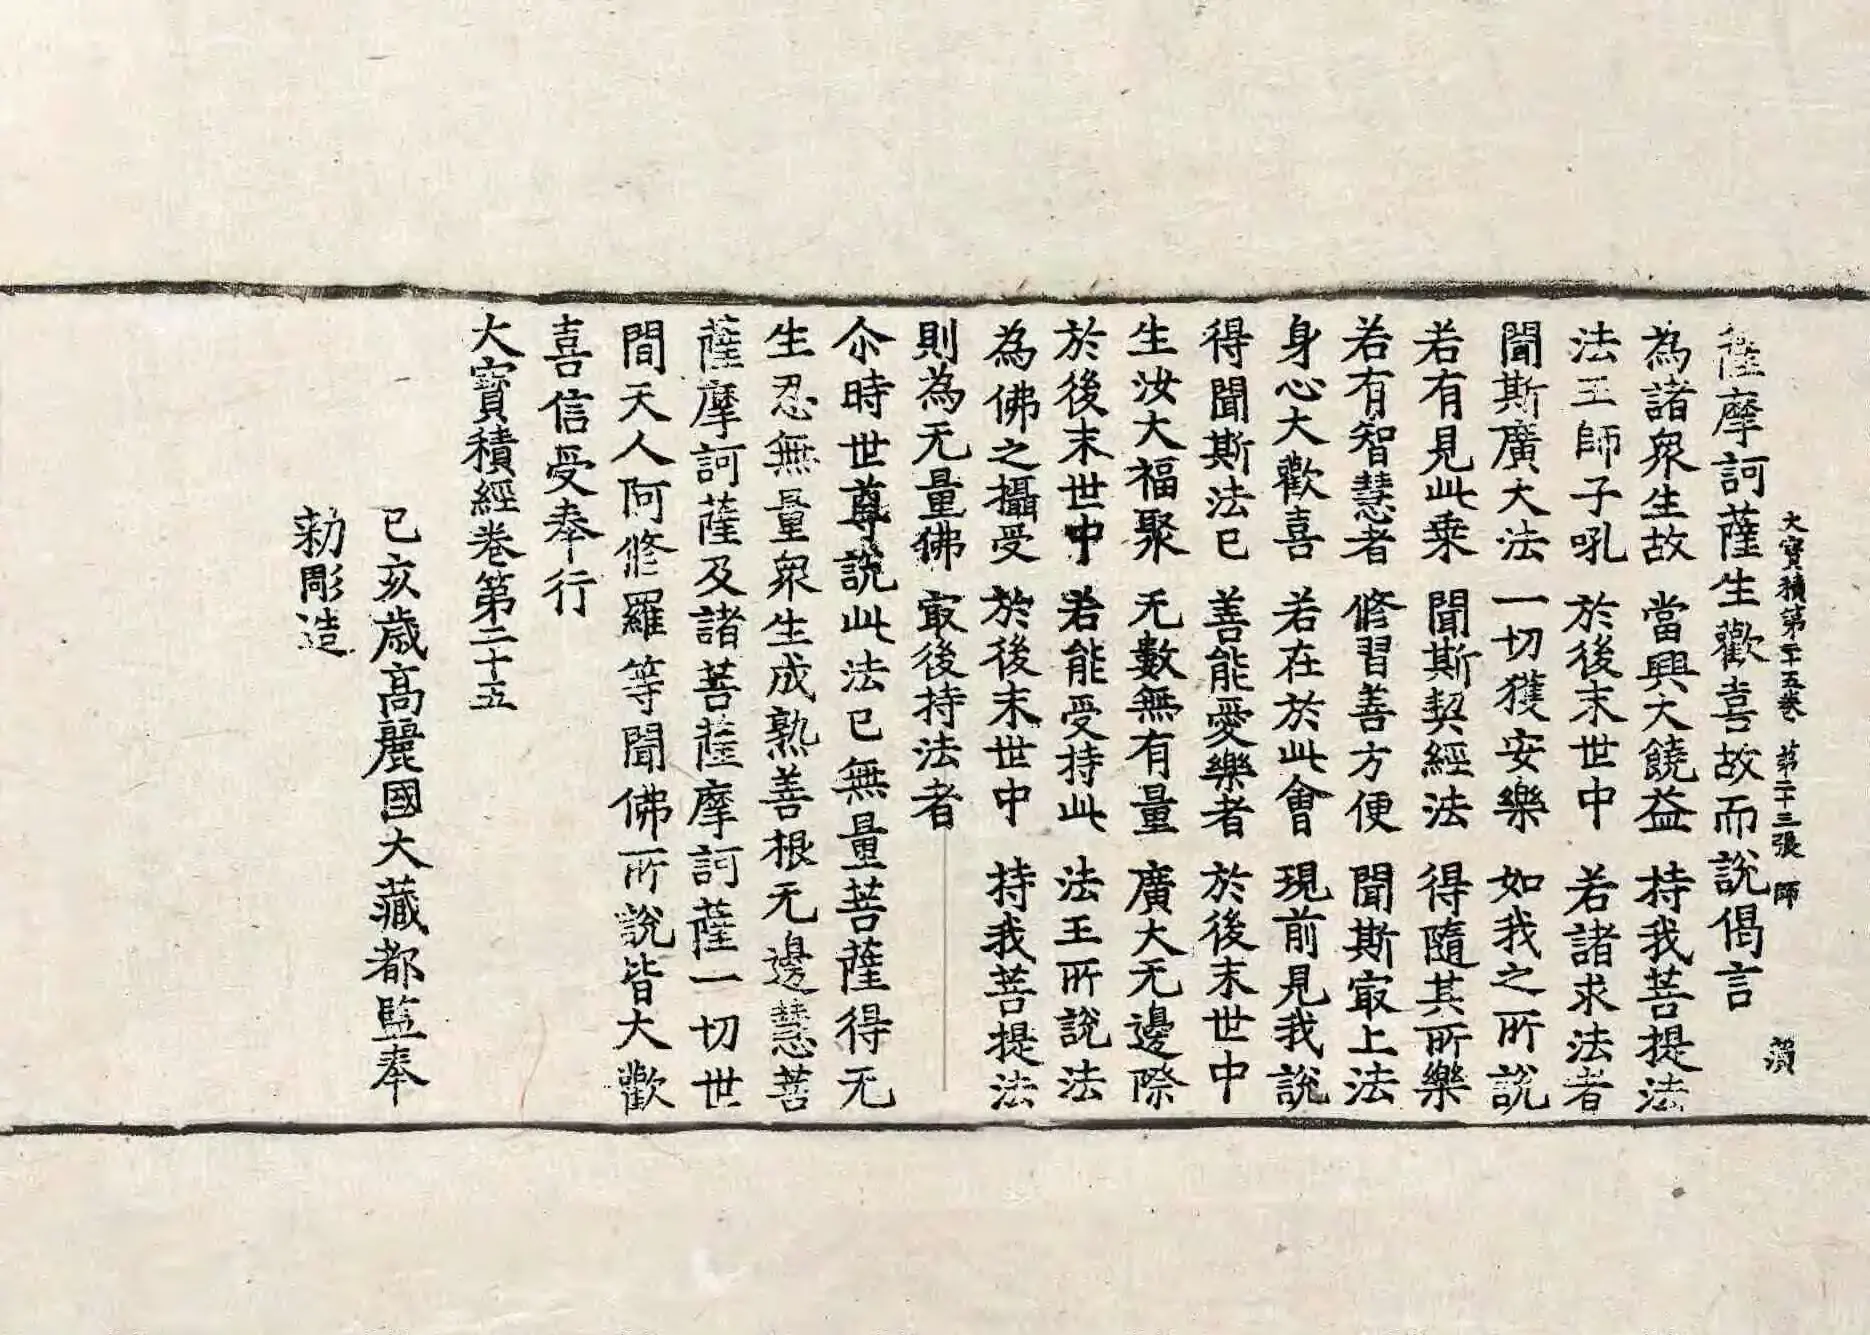 大寳積第二十五卷 第二十三張 師
薩摩訶薩生歡喜故而說偈言
為諸衆生故 當興大饒益 持我菩提法
法王師子吼 於後末世中 若諸求法者
聞斯廣大法 一切獲安樂 如我之所說
若有見此乗 聞斯契經法 得隨其所樂
若有智慧者 修習善方便 聞斯㝡上法
身心大歡喜 若在於此會 現前見我說
得聞斯法已 善能愛樂者 於後末世中
生汝大福聚 无數無有量 廣大无邊際
於後末世中 若能受持此 法王所說法
為佛之攝受 於後末世中 持我菩提法
則為无量佛 㝡後持法者
尒時世尊說此法已無量菩薩得无
生忍無量衆生成熟善根无邊慧菩
薩摩訶薩及諸菩薩摩訶薩一切世
間天人阿脩羅等聞佛所說皆大歡
喜信受奉行
大寳積經卷第二十五
己亥歲高麗國大藏都監奉
勑彫造